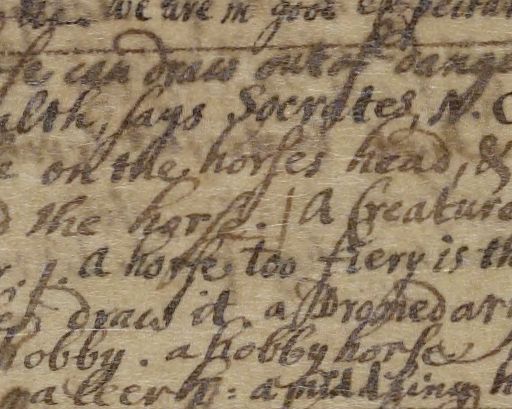 we are in good
can draw out of dang
alth, says Socrates, N. C
e on the horses head, &
d the horse. / A Creature
r. /. a horse too fiery is th
draw it. a Dromedar
hobby. a hobby horse
a middling h